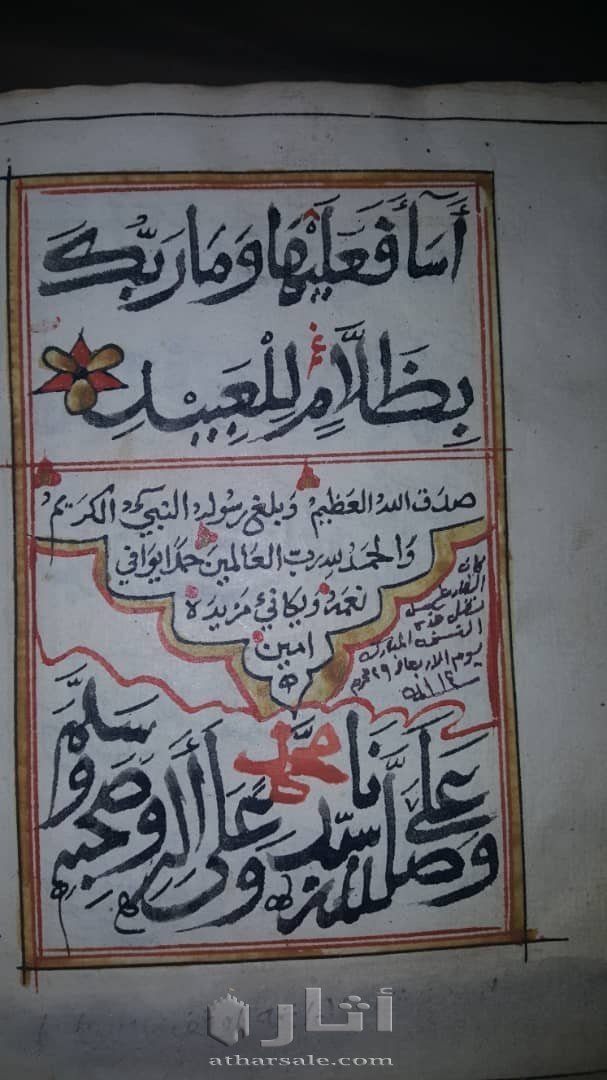 أَسَآءَ فَعَلَيْهَا وَمَا رَبُّكَ
بِظَلَّامٍ لِلْعَبِيدِ
صدق الله العظيم وبلغ رسوله النبي الكريم
والحمد لله رب العالمين حمدا يوافي
نعمه ويكافئ مزيده
امين
كان
الفراغ من
نقل هذه
النسخة المباركة
يوم الاربعاء ٢٩ محرم
وصلى الله على سيدنا محمد وعلى آله وصحبه وسلم
أثار
atharsale.com